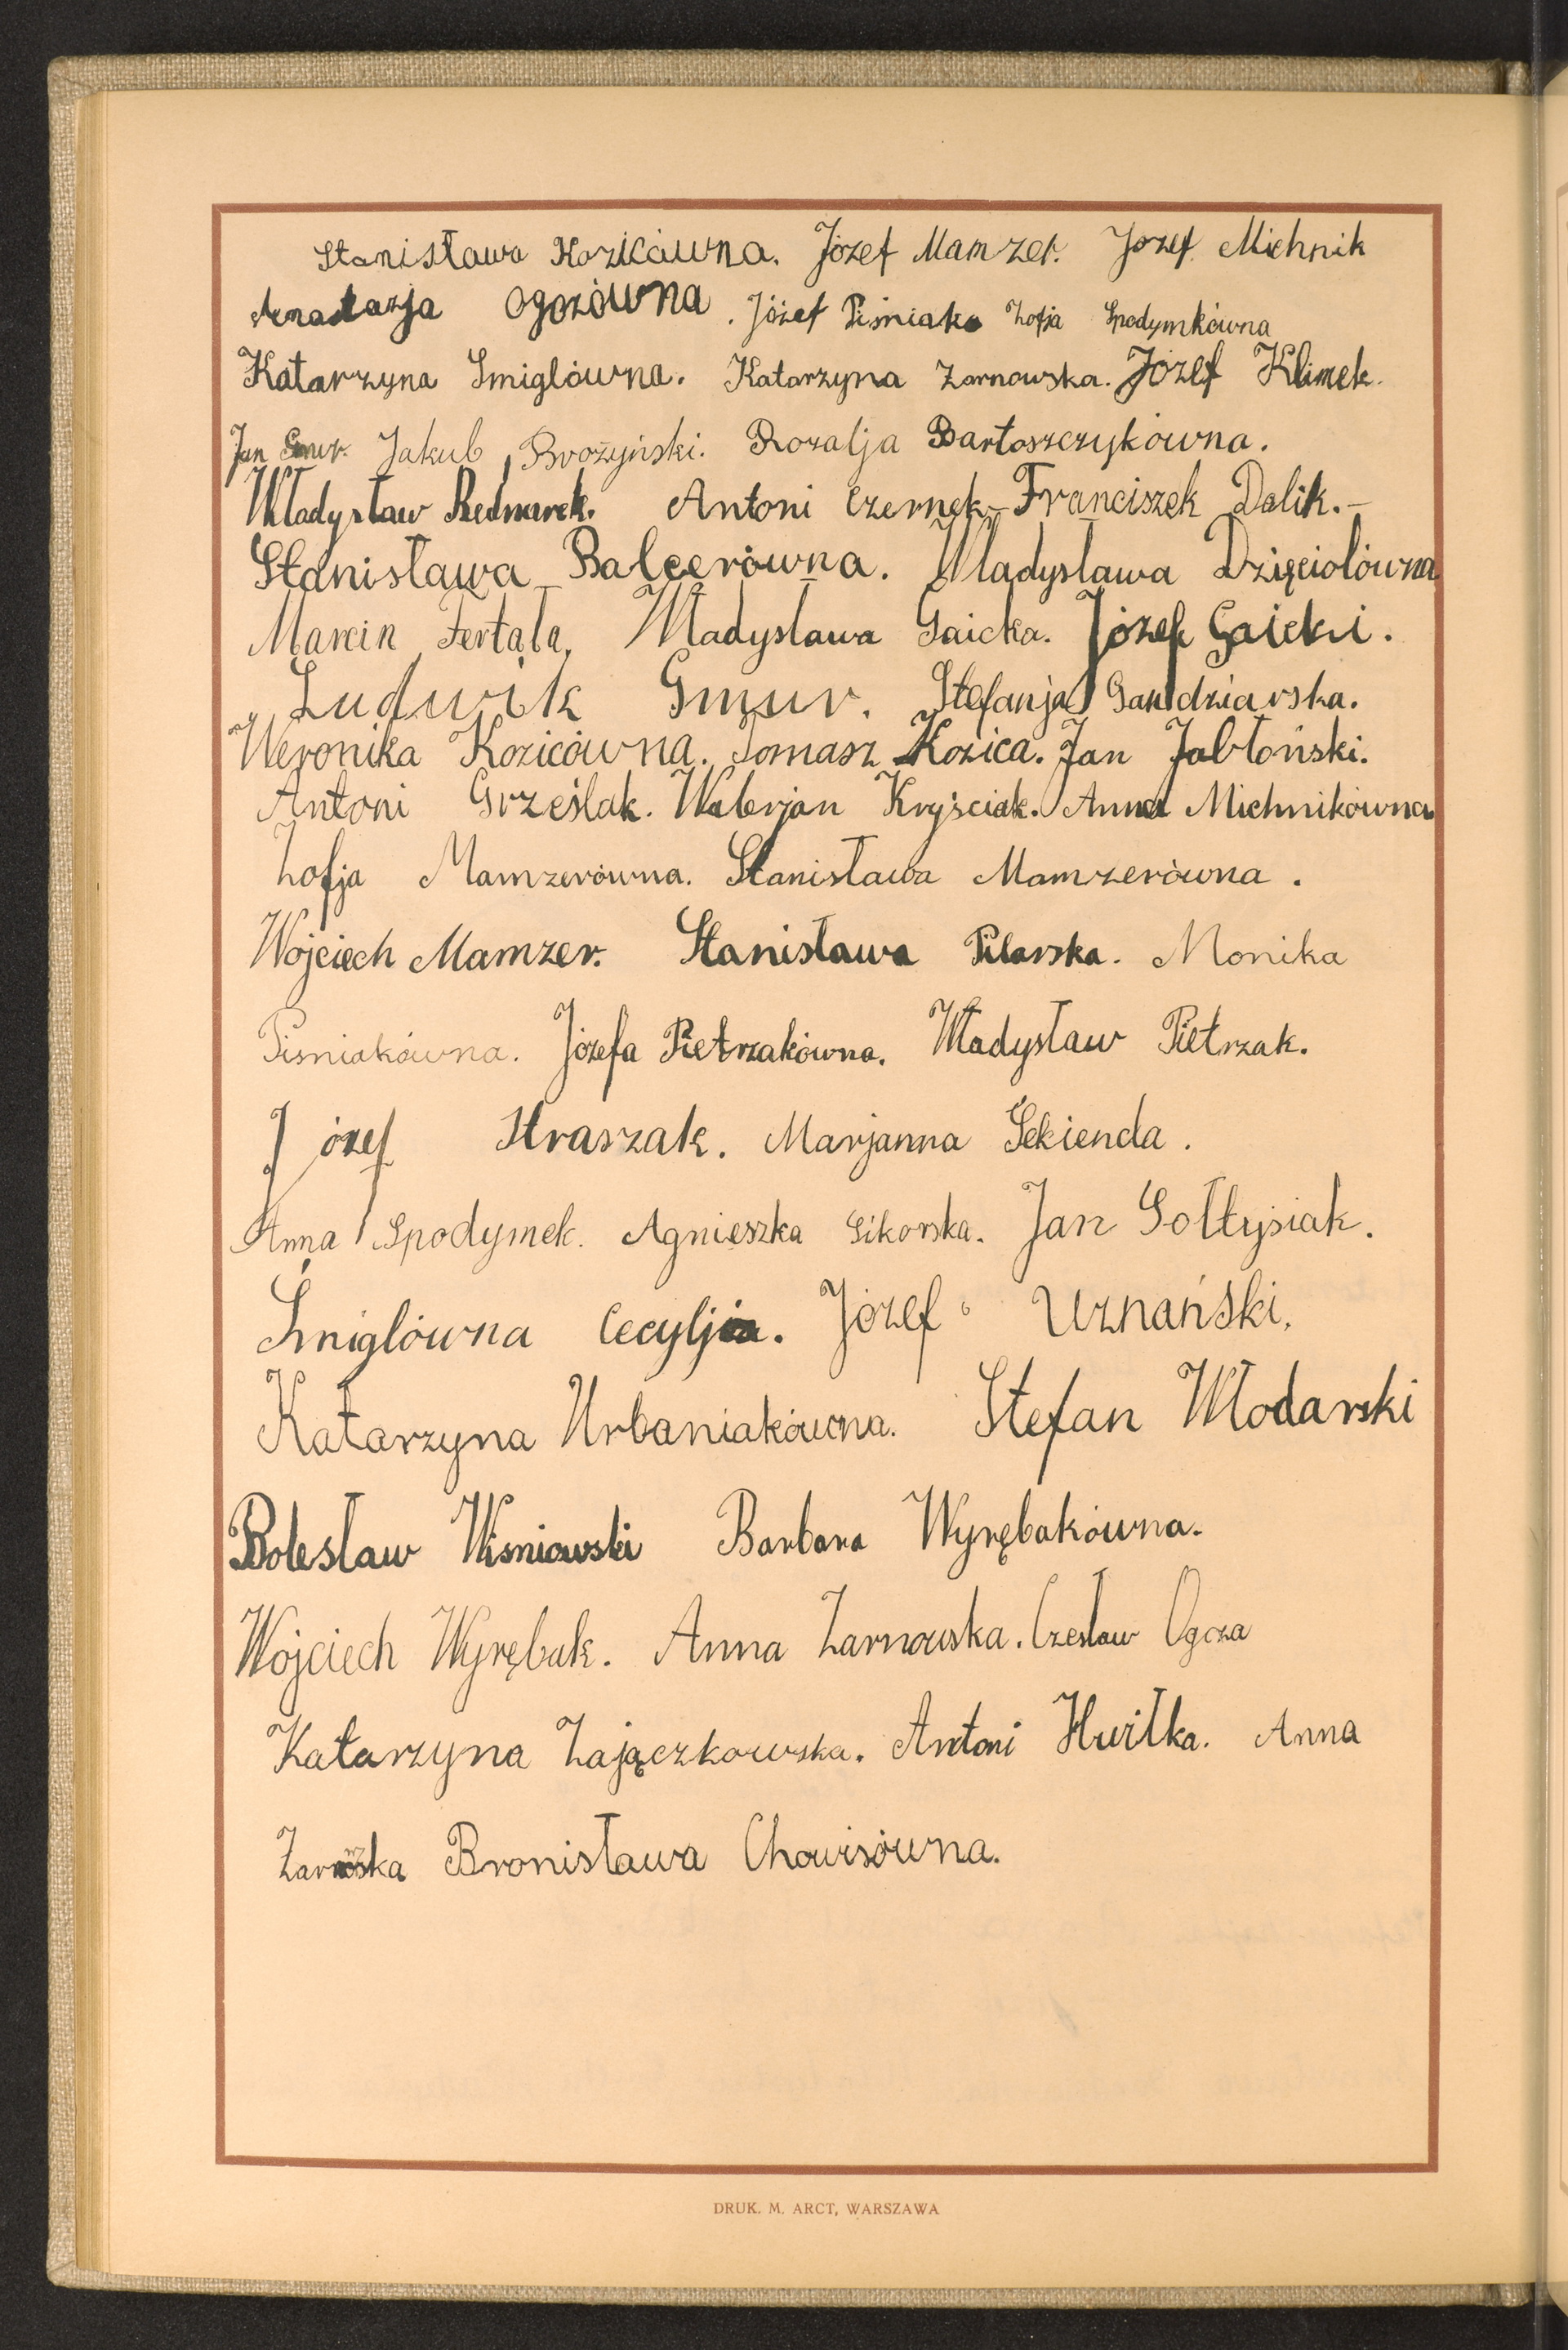 Stanisława Kozicówna. Józef Mamzer. Józef Michnik
Anastazja Ogozówna. Józef Piśniak Zofja Spodymkówna
Katarzyna Śmiglówna. Katarzyna Żarnowska. Józef Klimek.
Jan Gmur. Jakub Brożyński. Rozalja Bartoszczykówna.
Władysław Bednarek. Antoni Czernek Franciszek Dalik.-
Stanisława Balcerówna. Władysława Dzięciołówna
Marcin Fertała, Władysława Gaicka. Józef Gaicki.
Ludwik Gmur. Stefanja Gandziarska.
Weronika Kozicówna. Tomasz Kozica. Jan Jabłoński.
Antoni Grześlak. Walerjan Kryściak. Anna Michnikówna
Zofja Mamzerówna. Stanisława Mamzerówna.
Wojciech Mamzer. Stanisława Pilarska. Monika
Piśniakówna. Józefa Pietrzakówna. Władysław Pietrzak.
Józef Straszak. Marjanna Sekienda.
Anna Spodymek. Agnieszka Sikorska. Jan Sołtysiak.
Śmiglówna Cecylja. Józef Uznański.
Katarzyna Urbaniakówna. Stefan Włodarski
Bolesław Wiśniowski Barbara Wyrębakówna.
Wojciech Wyrębak. Anna Żarnowska. Czesław Ogoza
Katarzyna Zajączkowska. Antoni Hwiłka. Anna
Bronisława Chowisówna.
DRUK. M. ARCT, WARSZAWA